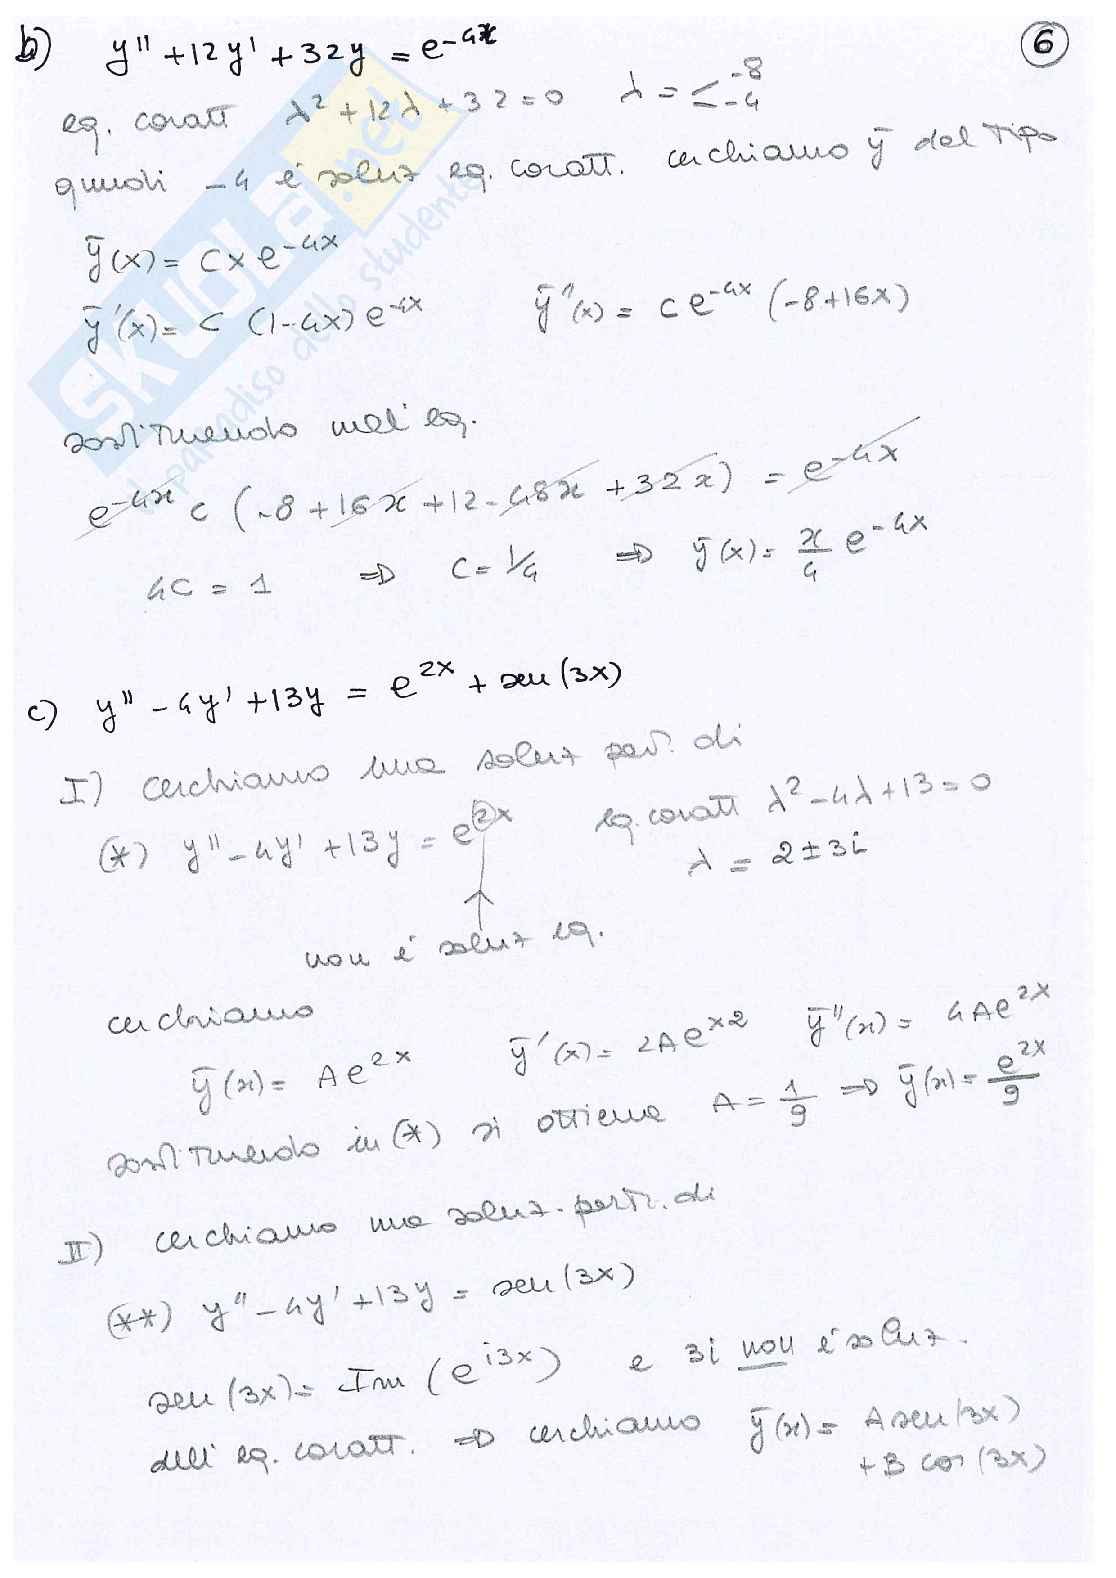 b) y'' + 12y' + 32y = e^{-4x} 6
eq. caratt λ² + 12λ + 32 = 0 λ = < -8 -4
quindi -4 è soluz eq. caratt. cerchiamo ȳ del tipo
ȳ(x) = C x e^{-4x}
ȳ'(x) = C (1-4x) e^{-4x} ȳ''(x) = C e^{-4x} (-8+16x)
sostituendo nell'eq.
e^{-4x} C (-8 + 16x + 12 - 48x + 32x) = e^{-4x}
4C = 1 ⇒ C = 1/4 ⇒ ȳ(x) = x/4 e^{-4x}
c) y'' - 4y' + 13y = e^{2x} + sen(3x)
I) cerchiamo una soluz part. di
(*) y'' - 4y' + 13y = e^{2x} eq. caratt λ² - 4λ + 13 = 0
λ = 2 ± 3i
non è soluz eq.
cerchiamo
ȳ(x) = A e^{2x} ȳ'(x) = 2A e^{x2} ȳ''(x) = 4A e^{2x}
sostituendo in (*) si ottiene A = 1/9 ⇒ ȳ(x) = e^{2x}/9
II) cerchiamo una soluz. part. di
(**) y'' - 4y' + 13y = sen(3x)
sen(3x) = Im(e^{i3x}) e 3i non è soluz.
dell'eq. caratt. ⇒ cerchiamo ȳ(x) = A sen(3x)
+ B cos(3x)
SKUOLA.net
il paradiso dello studente